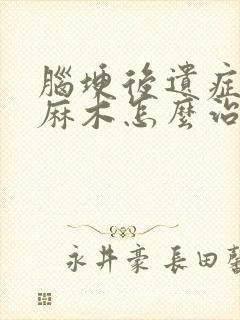 腦埂後遺症
麻木怎麼治
永井豪 長田馨